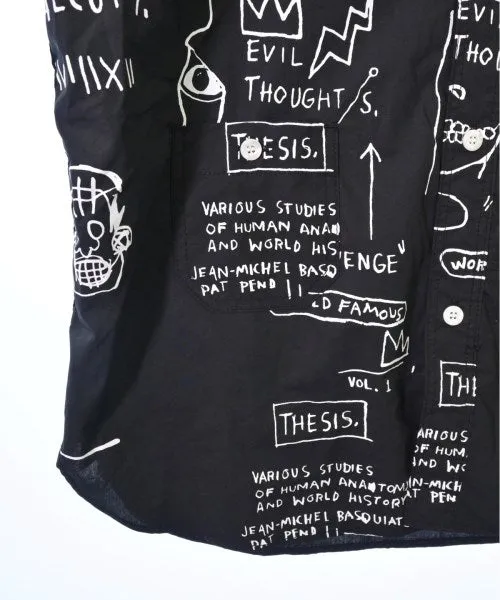 EVIL
THOUGHTS.
THESIS.
VARIOUS STUDIES
OF HUMAN ANA
AND WORLD HIS
JEAN-MICHEL BASQ
PAT PEND
"ENGE"
D FAMOUS
VOL. 1
THESIS.
VARIOUS STUDIES
OF HUMAN ANATOM
AND WORLD HISTORY
JEAN-MICHEL BASQUIAT
PAT PEND
EVI
THO
WOR
THE
ARIOUS
OF HUM
AND WO
N-MICH
AT PEN